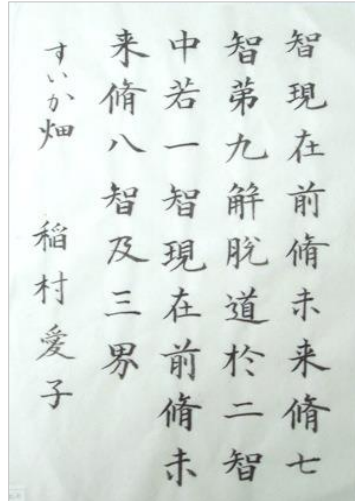 智現在前脩未来脩七
智第九解脱道於二智
中若一智現在前脩未
来脩八智及三界
すいか畑 稲村愛子